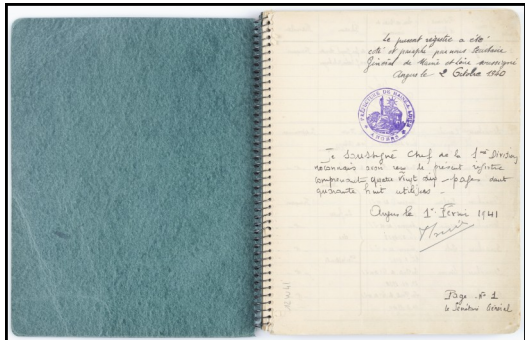 Le présent registre a été
coté et paraphé par nous Secrétaire
Général de Maine et Loire soussigné
Angers le 2 Octobre 1940
PRÉFECTURE DE MAINE & LOIRE
ANGERS
Je soussigné Chef de la 1ère Division
reconnais avoir reçu le présent registre
comprenant quatre vingt dix pages dont
quarante huit utilisées -
Angers le 1er Février 1941
Page N° 1
le Secrétaire Général